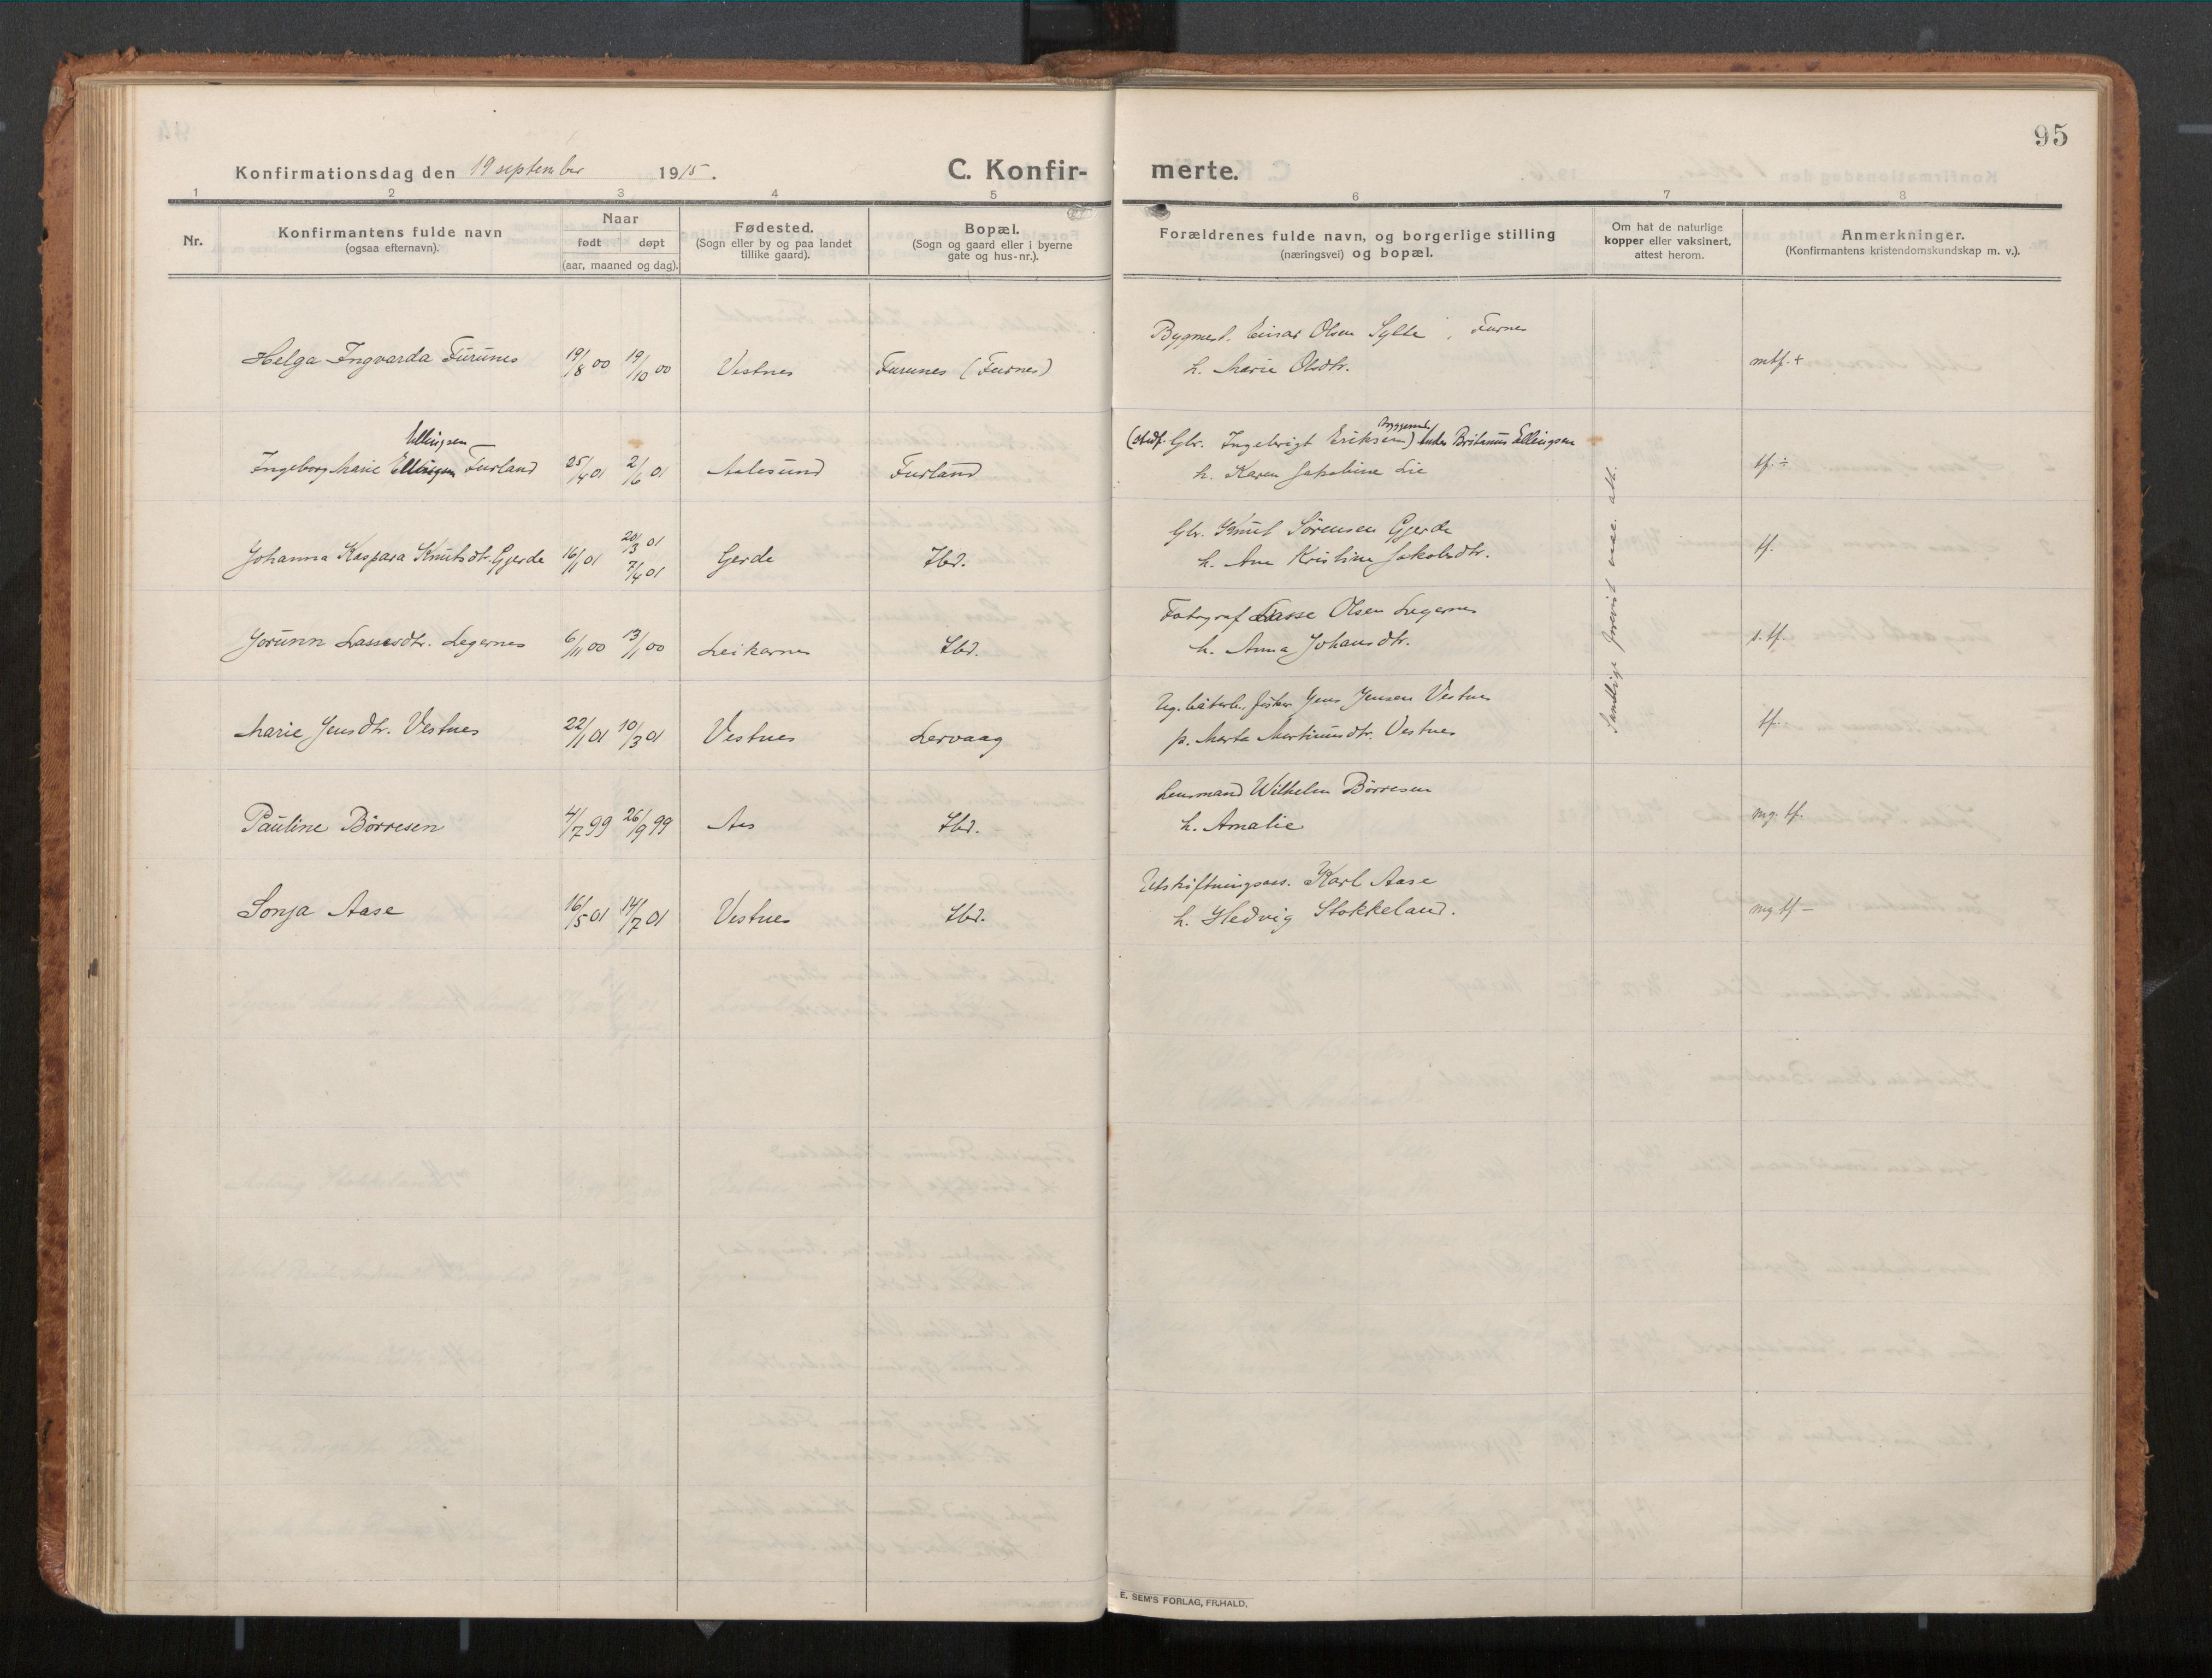 95
Konfirmationsdag den 19 september 1915. C. Konfir- merte.
1 2 3 4 5 6 7 8
Nr.
Konfirmantens fulde navn
(ogsaa efternavn).
Naar
født døpt
(aar, maaned og dag).
Fødested.
(Sogn eller by og paa landet
tillike gaard).
Bopæl.
(Sogn og gaard eller i byerne
gate og hus-nr.).
Forældrenes fulde navn, og borgerlige stilling
(næringsvei) og bopæl.
Om hat de naturlige
kopper eller vaksinert,
attest herom.
Anmerkninger.
(Konfirmantens kristendomskundskap m. v.).
Bygmest. Einar Olsen Sylte, Furnes
Helga Ingvarda Furunes 19/8 00 19/10 00 Vestnes Furunes (Furnes) h. Marie Olsdtr. mtf. +
Ellingsen
(stedf. Gbr. Ingebrigt Eriksen) Anders Britanus Ellingsen
Ingeborg Marie Ellingsen Furland 25/4 01 2/6 01 Aalesund Furland h. Karen Jakobine Lie tf. ÷
Gbr. Knut Sørensen Gjerde
Johanna Kaspara Knutsdtr. Gjerde 16/1 01 20/3 01 7/4 01 Gerde Ibd. h. Ane Kristine Jakobsdtr. tf.
Fotograf Lasse Olsen Legernes
Jorunn Lassesdtr. Legernes 6/11 00 13/1 00 Leikarnes Ibd. h. Anna Johansdtr. s. tf.
Ug. fisker Jens Jensen Vestnes
Marie Jensdtr. Vestnes 22/1 01 10/3 01 Vestnes Lervaag p. Marta Martinusdtr. Vestnes tf. -
Lensmand Wilhelm Børresen
Pauline Børresen 4/7 99 26/9 99 Aas Ibd. h. Amalie mg. tf.
Utskiftningsass. Karl Aase
Sonja Aase 16/5 01 14/7 01 Vestnes Ibd. h. Hedvig Stokkeland. mg tf -
Samtlige forevist vac. att.
E. SEM'S FORLAG, FR.HALD.